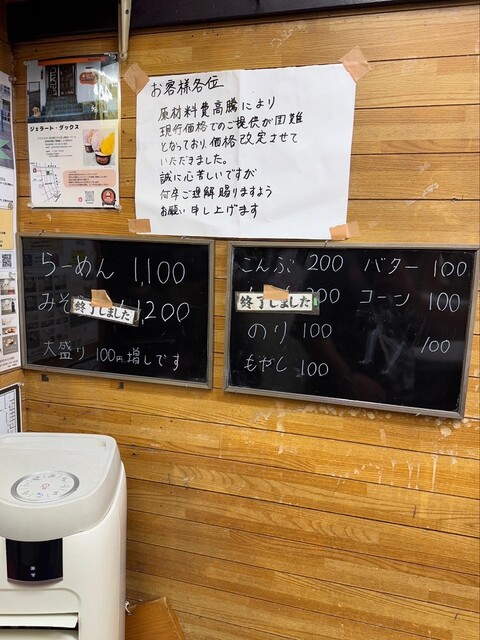 お客様各位
原材料費高騰により
現行価格でのご提供が困難
となっており、価格改定させて
いただきました。
誠に心苦しいですが
何卒ご理解賜りますよう
お願い申し上げます
ジェラート・ダックス
らーめん 1,100
みそ 1,200
終了しました
大盛り 100円増しです
こんぶ 200 バター 100
終了しました 200 コーン 100
のり 100
100
もやし 100